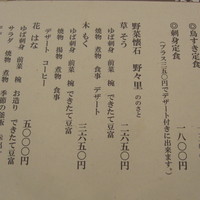 ◎鳥すき定食
◎刺身定食 一八〇〇円
(プラス三五〇円でデザート付きに出来ます。)
野菜懐石 野々里 ののさと
草 そう 二六五〇円
ゆば刺身 前菜 椀 できたて豆富
焼物 煮物 食事 デザート
木 もく 三六五〇円
ゆば刺身 前菜 椀 できたて豆富
焼物 揚物 煮物 食事
デザート コーヒー
花 はな 五〇〇〇円
ゆば刺身 前菜 椀 お造り できたて豆富
焼物 煮物 季節の釜飯
サラダ デザート